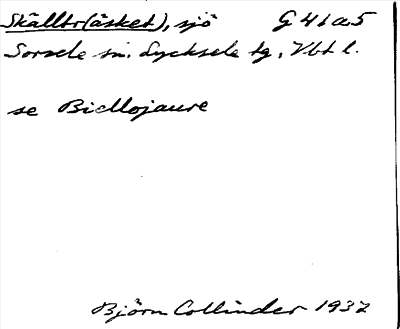 Skälltr(äsket), sjö G 41 a5
Sorsele sn. Lycksele tg, Vbt l.
se Biellojaure
Björn Collinder 1937